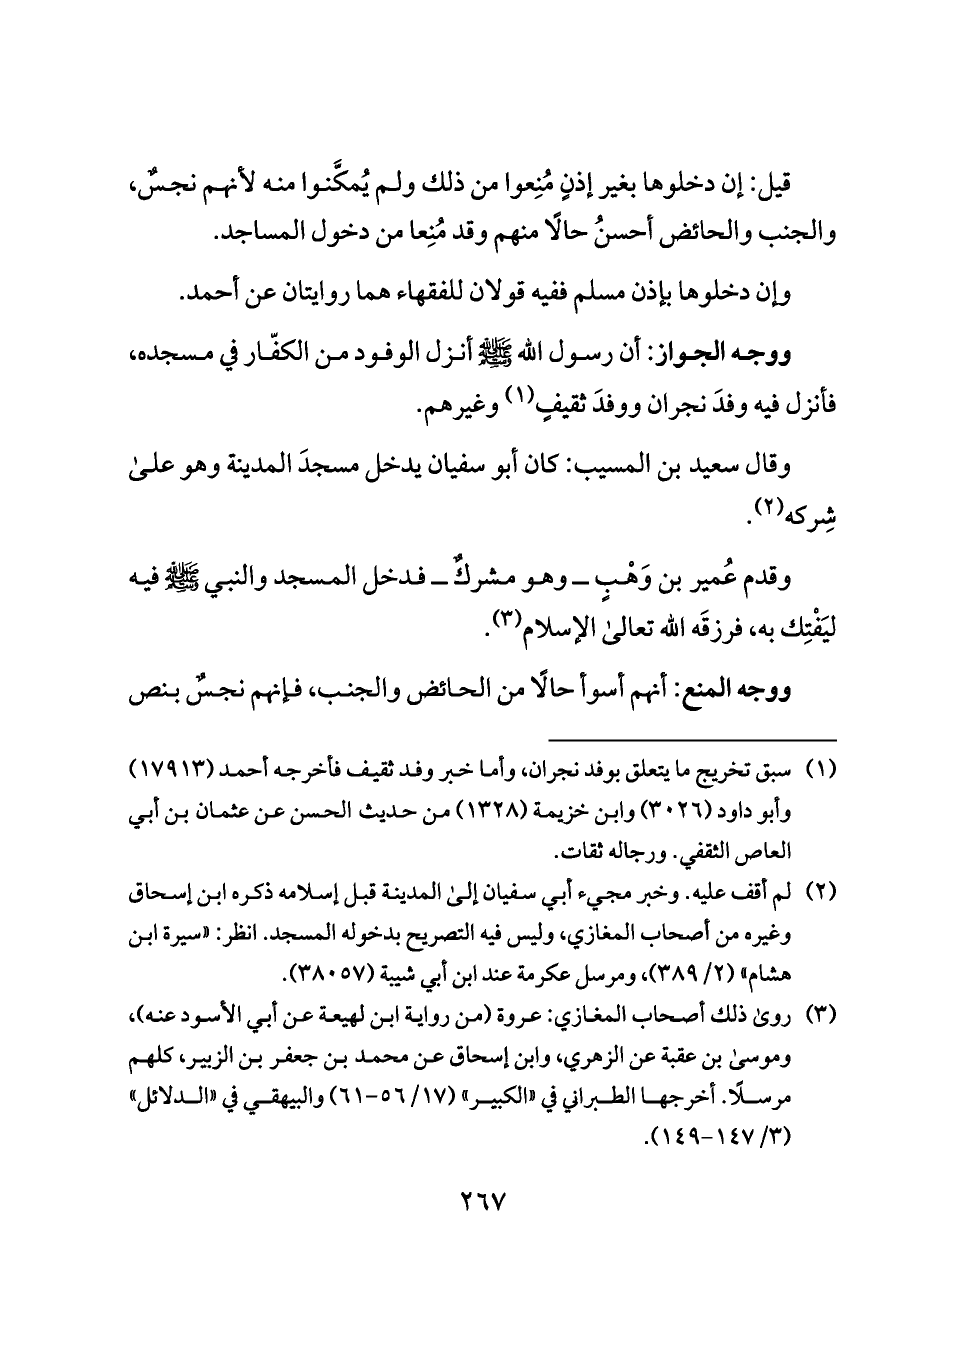 قيل: إن دخلوها بغير إذنٍ مُنِعوا من ذلك ولم يُمكَّنوا منه لأنهم نجسٌ،
والجنب والحائض أحسنُ حالًا منهم وقد مُنِعا من دخول المساجد.
وإن دخلوها بإذن مسلم ففيه قولان للفقهاء هما روايتان عن أحمد.
ووجه الجواز: أن رسول الله ﷺ أنزل الوفود من الكفّار في مسجده،
فأنزل فيه وفدَ نجران ووفدَ ثقيفٍ(١) وغيرهم.
وقال سعيد بن المسيب: كان أبو سفيان يدخل مسجدَ المدينة وهو علىٰ
شِركه(٢).
وقدم عُمير بن وَهْبٍ ــ وهو مشركٌ ــ فدخل المسجد والنبي ﷺ فيه
ليَفْتِك به، فرزقَه الله تعالىٰ الإسلام(٣).
ووجه المنع: أنهم أسوأ حالًا من الحائض والجنب، فإنهم نجسٌ بنص
(١) سبق تخريج ما يتعلق بوفد نجران، وأما خبر وفد ثقيف فأخرجه أحمد (١٧٩١٣)
وأبو داود (٣٠٢٦) وابن خزيمة (١٣٢٨) من حديث الحسن عن عثمان بن أبي
العاص الثقفي. ورجاله ثقات.
(٢) لم أقف عليه. وخبر مجيء أبي سفيان إلىٰ المدينة قبل إسلامه ذكره ابن إسحاق
وغيره من أصحاب المغازي، وليس فيه التصريح بدخوله المسجد. انظر: «سيرة ابن
هشام» (٢/ ٣٨٩)، ومرسل عكرمة عند ابن أبي شيبة (٣٨٠٥٧).
(٣) روىٰ ذلك أصحاب المغازي: عروة (من رواية ابن لهيعة عن أبي الأسود عنه)،
وموسىٰ بن عقبة عن الزهري، وابن إسحاق عن محمد بن جعفر بن الزبير، كلهم
مرسلًا. أخرجها الطبراني في «الكبير» (١٧/ ٥٦-٦١) والبيهقي في «الدلائل»
(٣/ ١٤٧-١٤٩).
٢٦٧